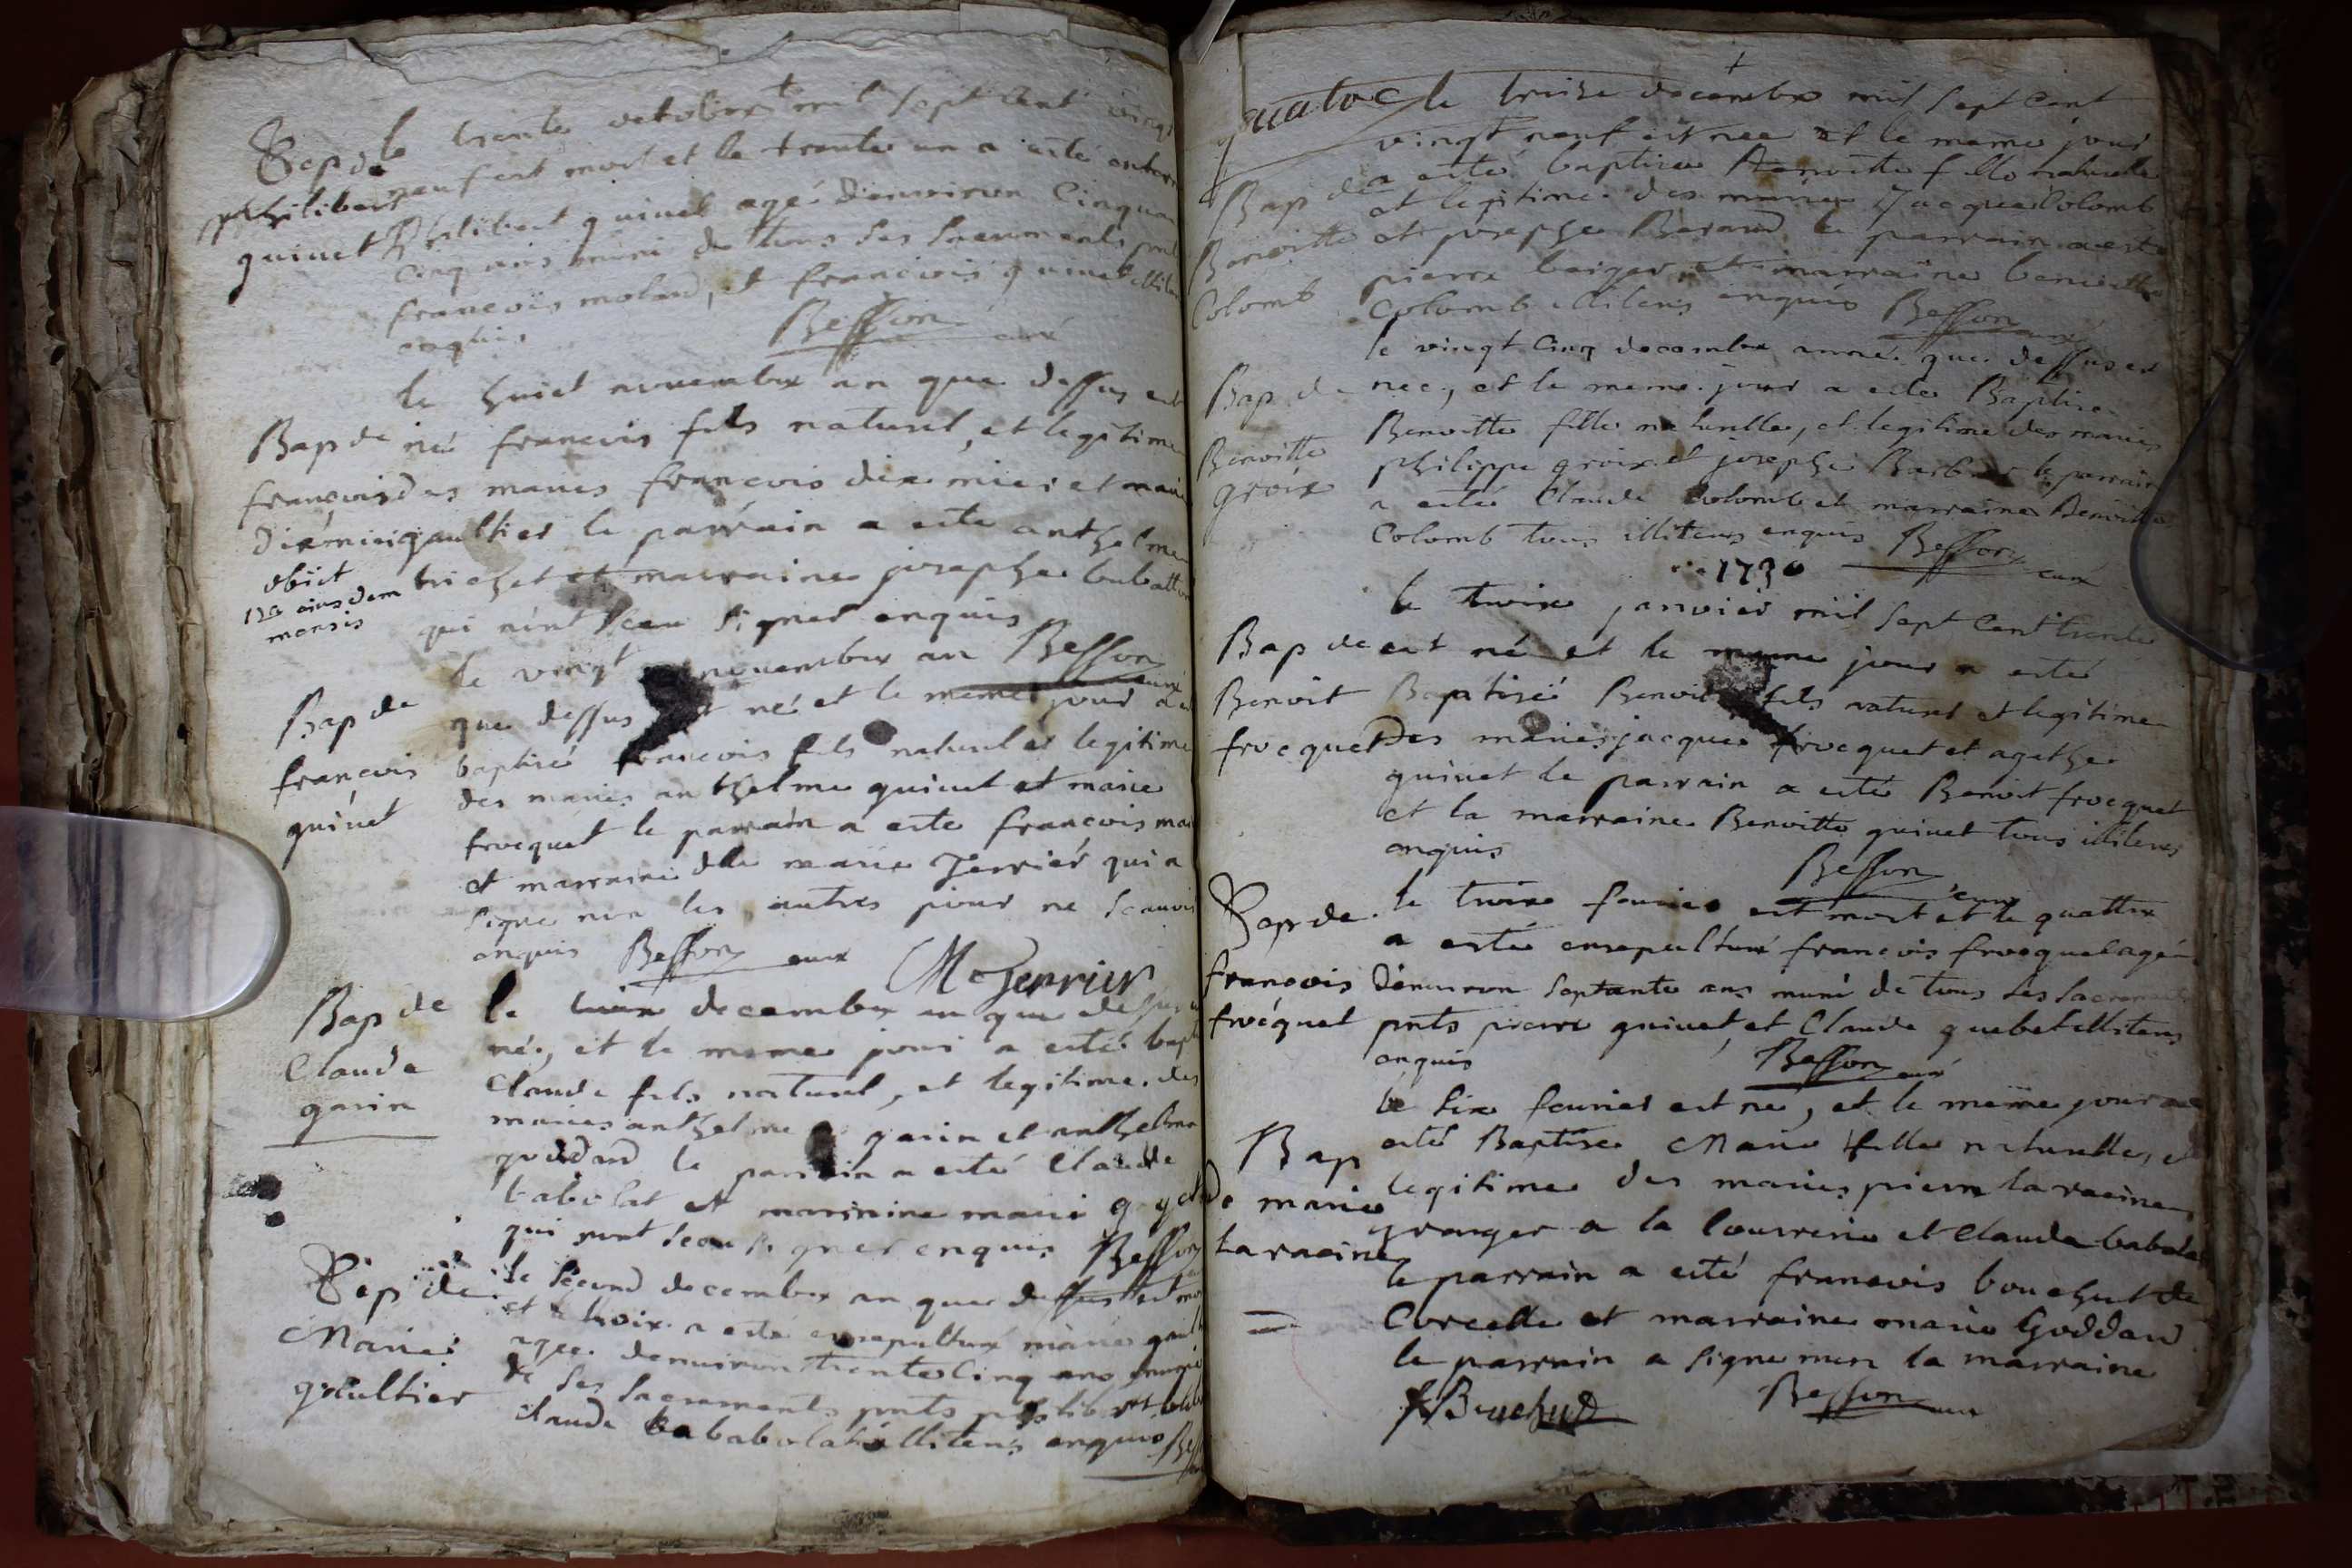 Sep de
philibert
quinet
le trente octobre mil sept cent vingt
neuf est mort et le trente un a esté enterré
philibert quinet agé d'environ cinquante
cinq ans muni de tous ses sacrements pnts
francois molard, et francois quinet illiteres
enquis Besson curé
Bap de
francois
dixmier
obiit
ejusdem
mensis
le huict novembre an que dessus est
né francois fils naturel, et legitime
des maries francois dixmier et marie
gaultier le parrain a esté anthelme
trichet et marraine josephe
qui n'ont sceu signer enquis
Besson curé
Bap de
francois
quinet
le vingt novembre an
que dessus est né et le meme jour a esté
baptisé francois fils naturel et legitime
des maries anthelme quinet et marie
frocquet le parrain a esté francois
et marraine dlle marie Jerrier qui a
signé non les autres pour ne scavoir
enquis Besson curé M Jerrier
Bap de
Claude
garin
le decembre an que dessus est
né, et le meme jour a esté bapt
Claude fils naturel, et legitime des
maries anthelme garin et anthelma
goddard le parrain a esté Claude
babolat et marraine marie
qui n'ont sceu signer enquis Besson
Sep de
Marie
gaultier
le second decembre an que dessus est morte
et le troix a esté ensepulturé marie gault
agee denviron trente cinq ans munie
de ses sacrements pnts philibert
claude babolat illiteres enquis Bess
quatorze le treize decembre mil sept cent
vingt neuf est nee et le meme jour
a esté baptisee Benoitte fille naturelle
et legitime des maries Jacques Colomb
et josephe Berard le parrain a esté
pierre et marraine benoitte
Colomb illiteres enquis Besson curé
Bap de
Benoitte
Colomb
le vingt cinq decembre année que dessus est
nee, et le meme jour a esté Baptisee
Benoitte fille naturelle, et legitime des maries
philippe groix et josephe le parrain
a esté Claude Colomb et marraine Benoitte
Colomb tous illiteres enquis Besson curé
Bap de
Benoitte
groix
1730
le troix janvier mil sept cent trente
est né et le meme jour a esté
Baptisé Benoit fils naturel et legitime
des maries jacques frocquet et agathe
quinet le parrain a esté Benoit frocquet
et la marraine Benoitte quinet tous illiteres
enquis Besson curé
Bap de
Benoit
frocquet
Sep de
francois
frocquet
le troix fevrier est mort et le quattre
a esté ensepulturé francois frocquet agé
d'environ septante ans muni de tous ses sacrements
pnts pierre quinet, et Claude quebet illiteres
enquis Besson curé
Bap
de marie
laracine
le six fevrier est né, et le meme jour a
esté Baptisee Marie fille naturelle, et
legitime des maries pierre laracine
granger a la et Clauda babolat
le parrain a esté francois bouchut de
Corcelle et marraine marie Goddard
le parrain a signe non la marraine
f Bouchud Besson curé